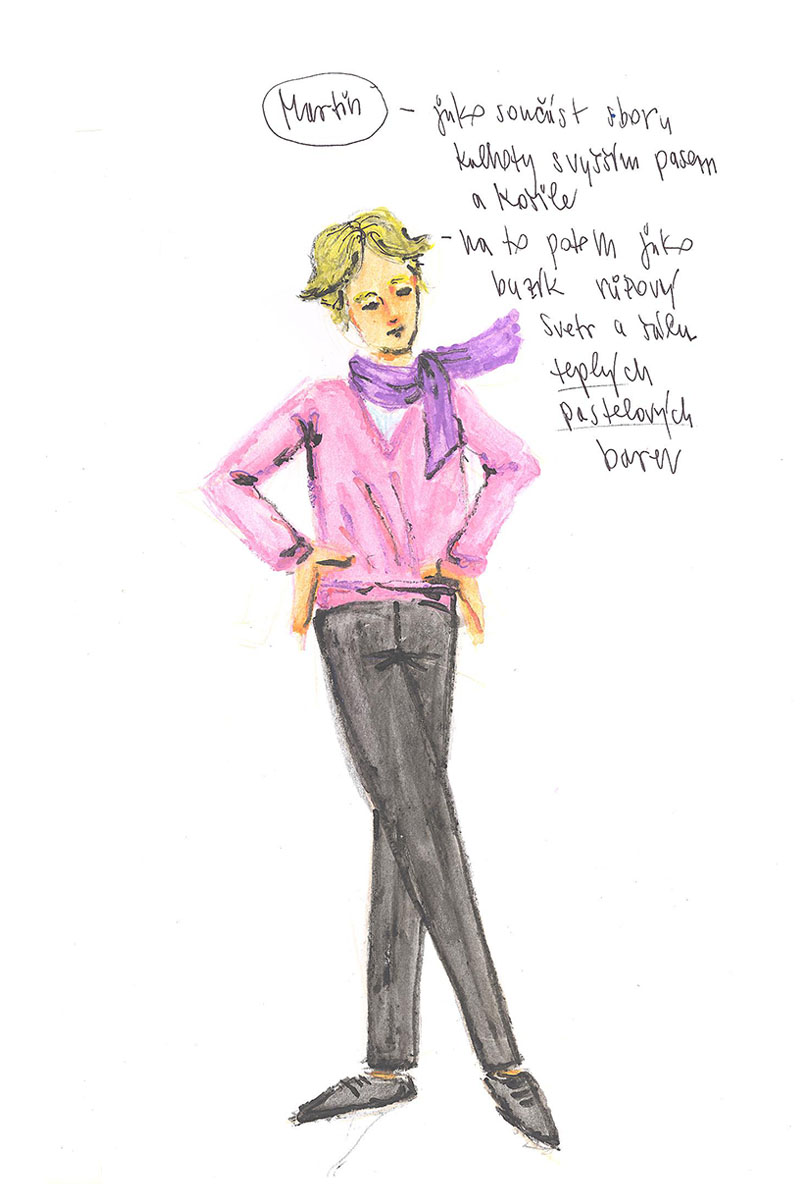 Martin - jako součást sboru
kalhoty s vyšším pasem
a košile
- na to potom jako
buzík růžový
svetr a šálu
teplých
pastelových
barev